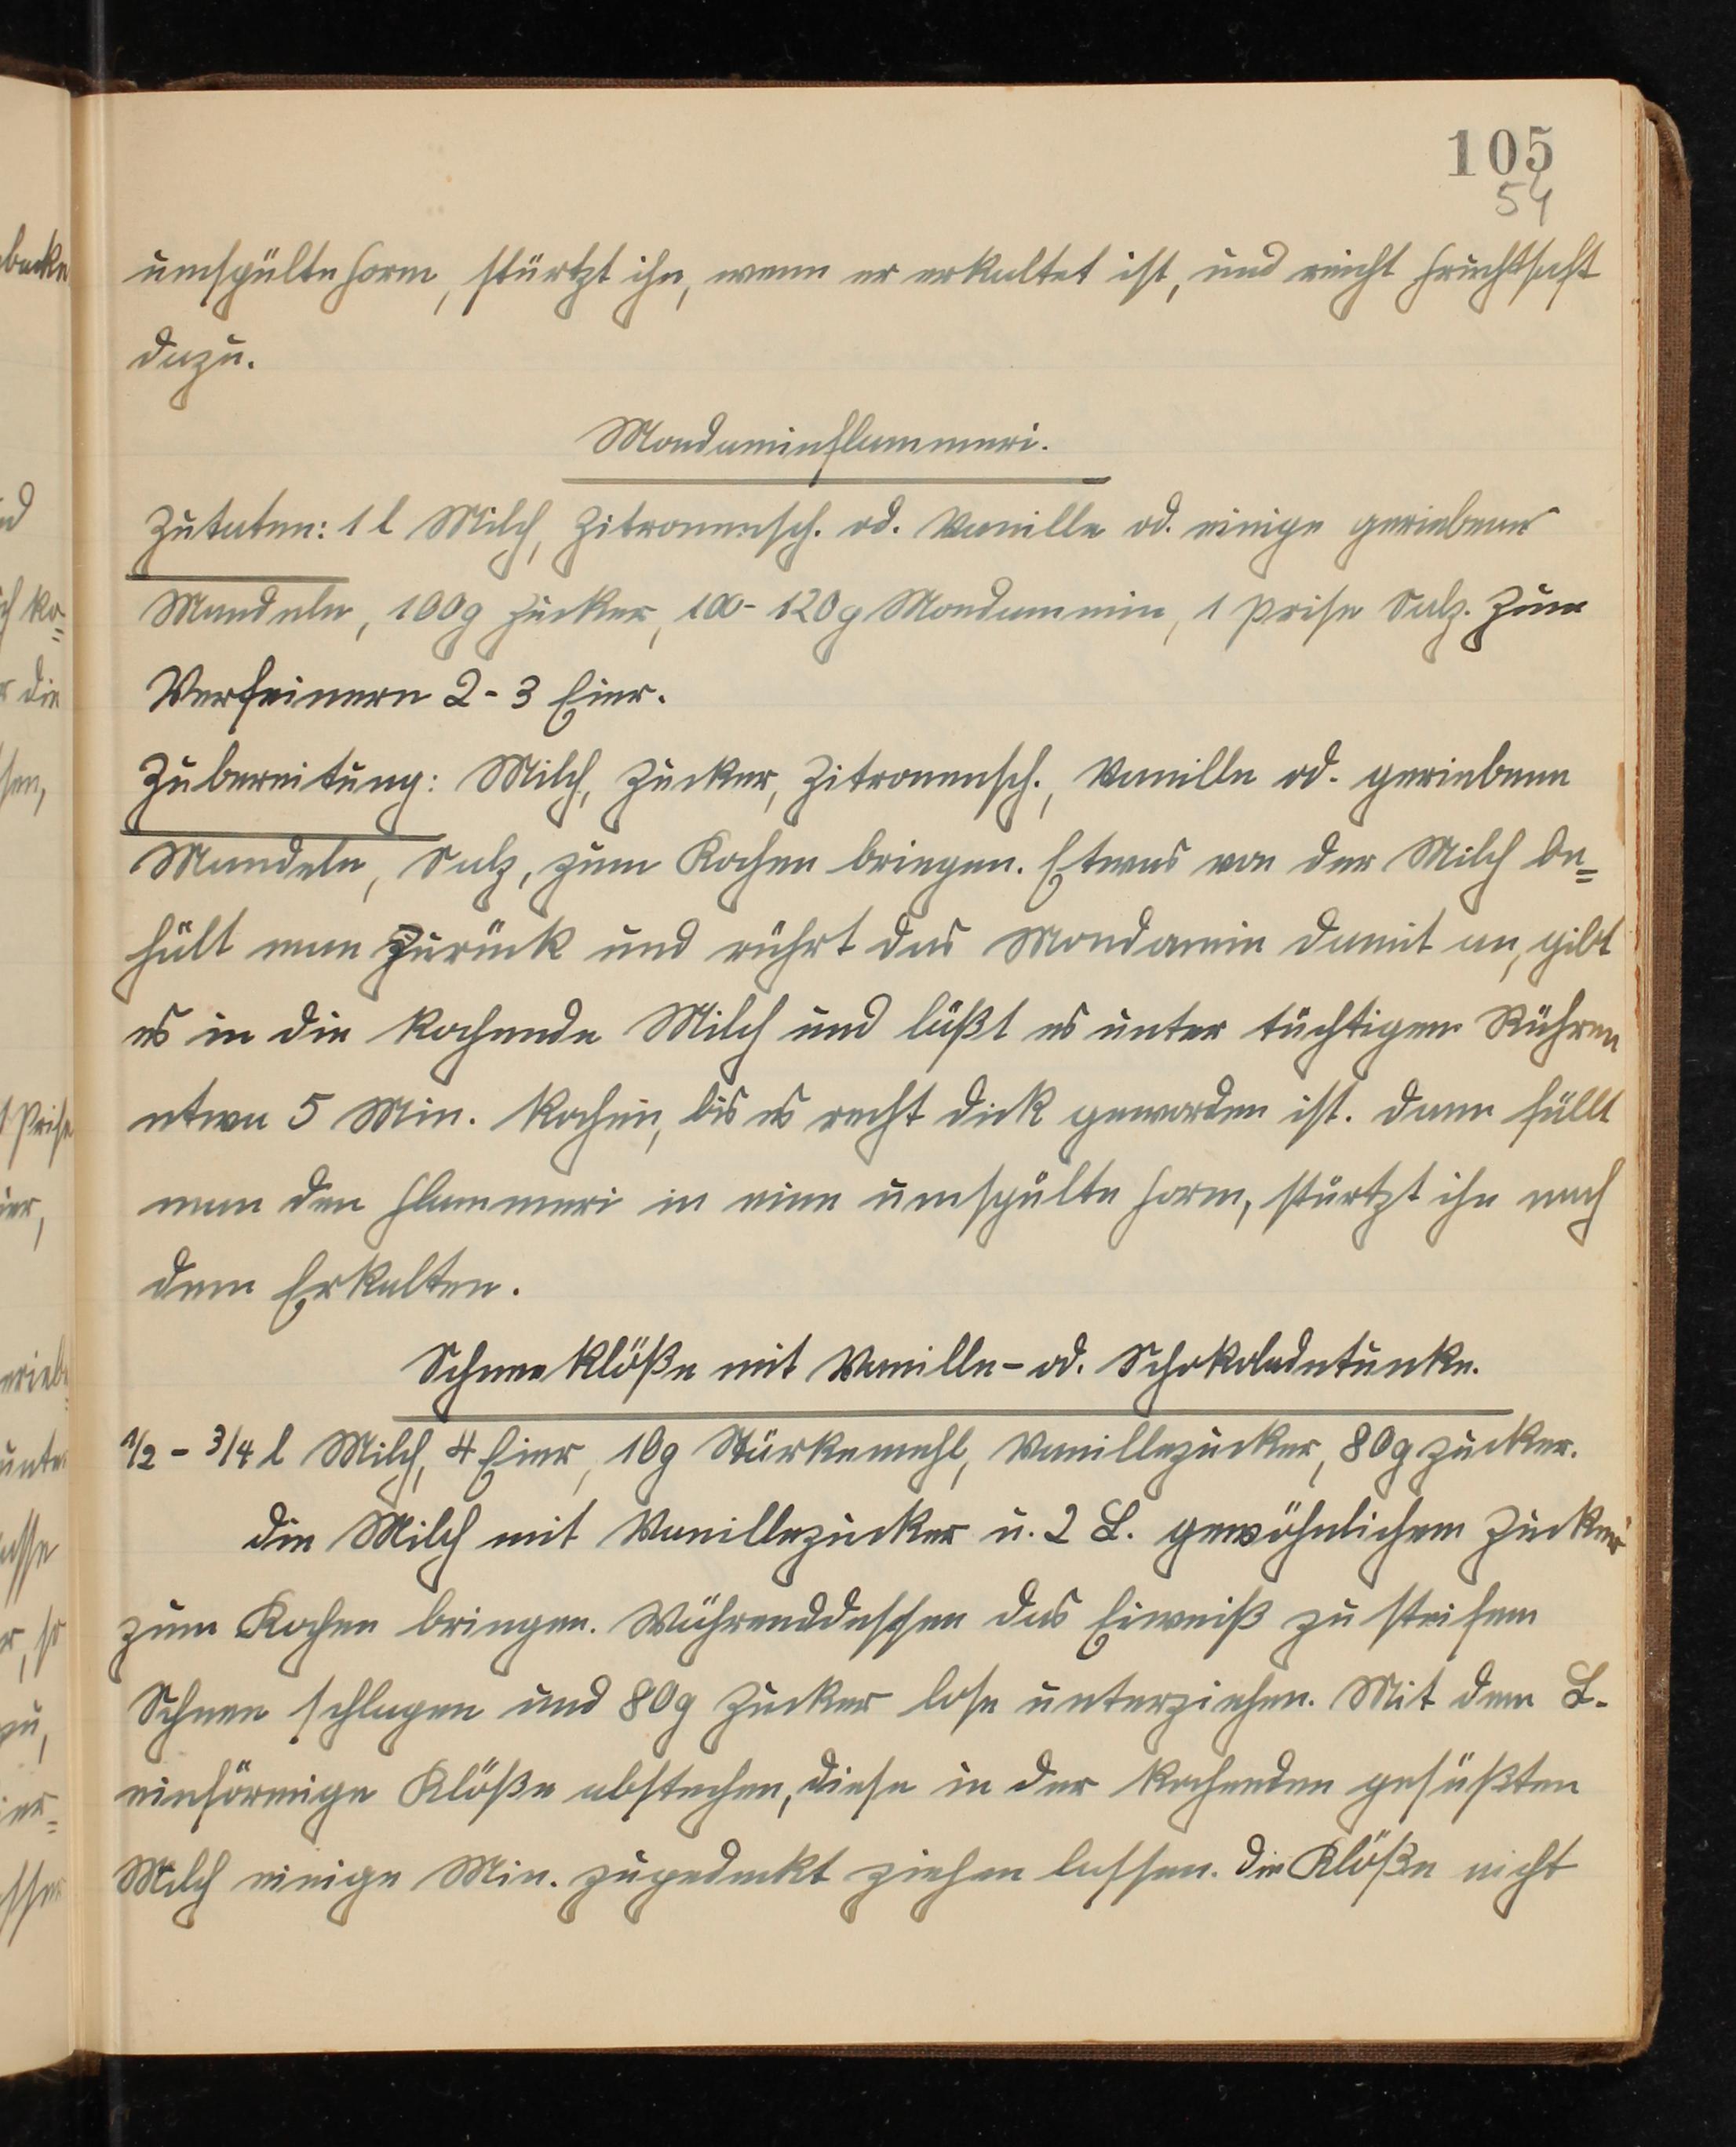 105
54
umspülte Form, stürtzt ihn, wenn er erkaltet ist, und reicht Fruchtsaft
dazu.
Mondaminflammeri.
Zutaten: 1 l Milch, Zitronensch. od. Vanille od. einige geriebene
Mandeln, 100g Zucker, 100-120g Mondammin, 1 Prise Salz. Zum
Verfeinern 2-3 Eier.
Zubereitung: Milch, Zucker, Zitronensch., Vanille od. geriebene
Mandeln, Salz, zum Kochen bringen. Etwas von der Milch be=
hält man zurück und rührt das Mondamin damit an, gibt
es in die kochende Milch und läßt es unter tüchtigem Rühren
etwa 5 Min. kochen, bis es recht dick geworden ist. Dann füllt
man den Flammeri in eine umspülte Form, stürtzt ihn nach
dem Erkalten.
Schneeklöße mit Vanille- od. Schokoladetunke.
1/2 - 3/4 l Milch, 4 Eier, 10g Stärkemehl, Vanillezucker, 80g Zucker.
Die Milch mit Vanillezucker u. 2 L. gewöhnlichem Zucker
zum Kochen bringen. Währenddessen das Eiweiß zu steifem
Schnee schlagen und 80g Zucker lose unterziehen. Mit dem L.
einförmige Klöße abstechen, diese in der kochenden gesüßten
Milch einige Min. zugedeckt ziehen lassen. Die Klöße nicht
backe
nd
ch ko-
r die
sen,
1 Prise
ier,
unter
asse
r, so
zu,
ier=